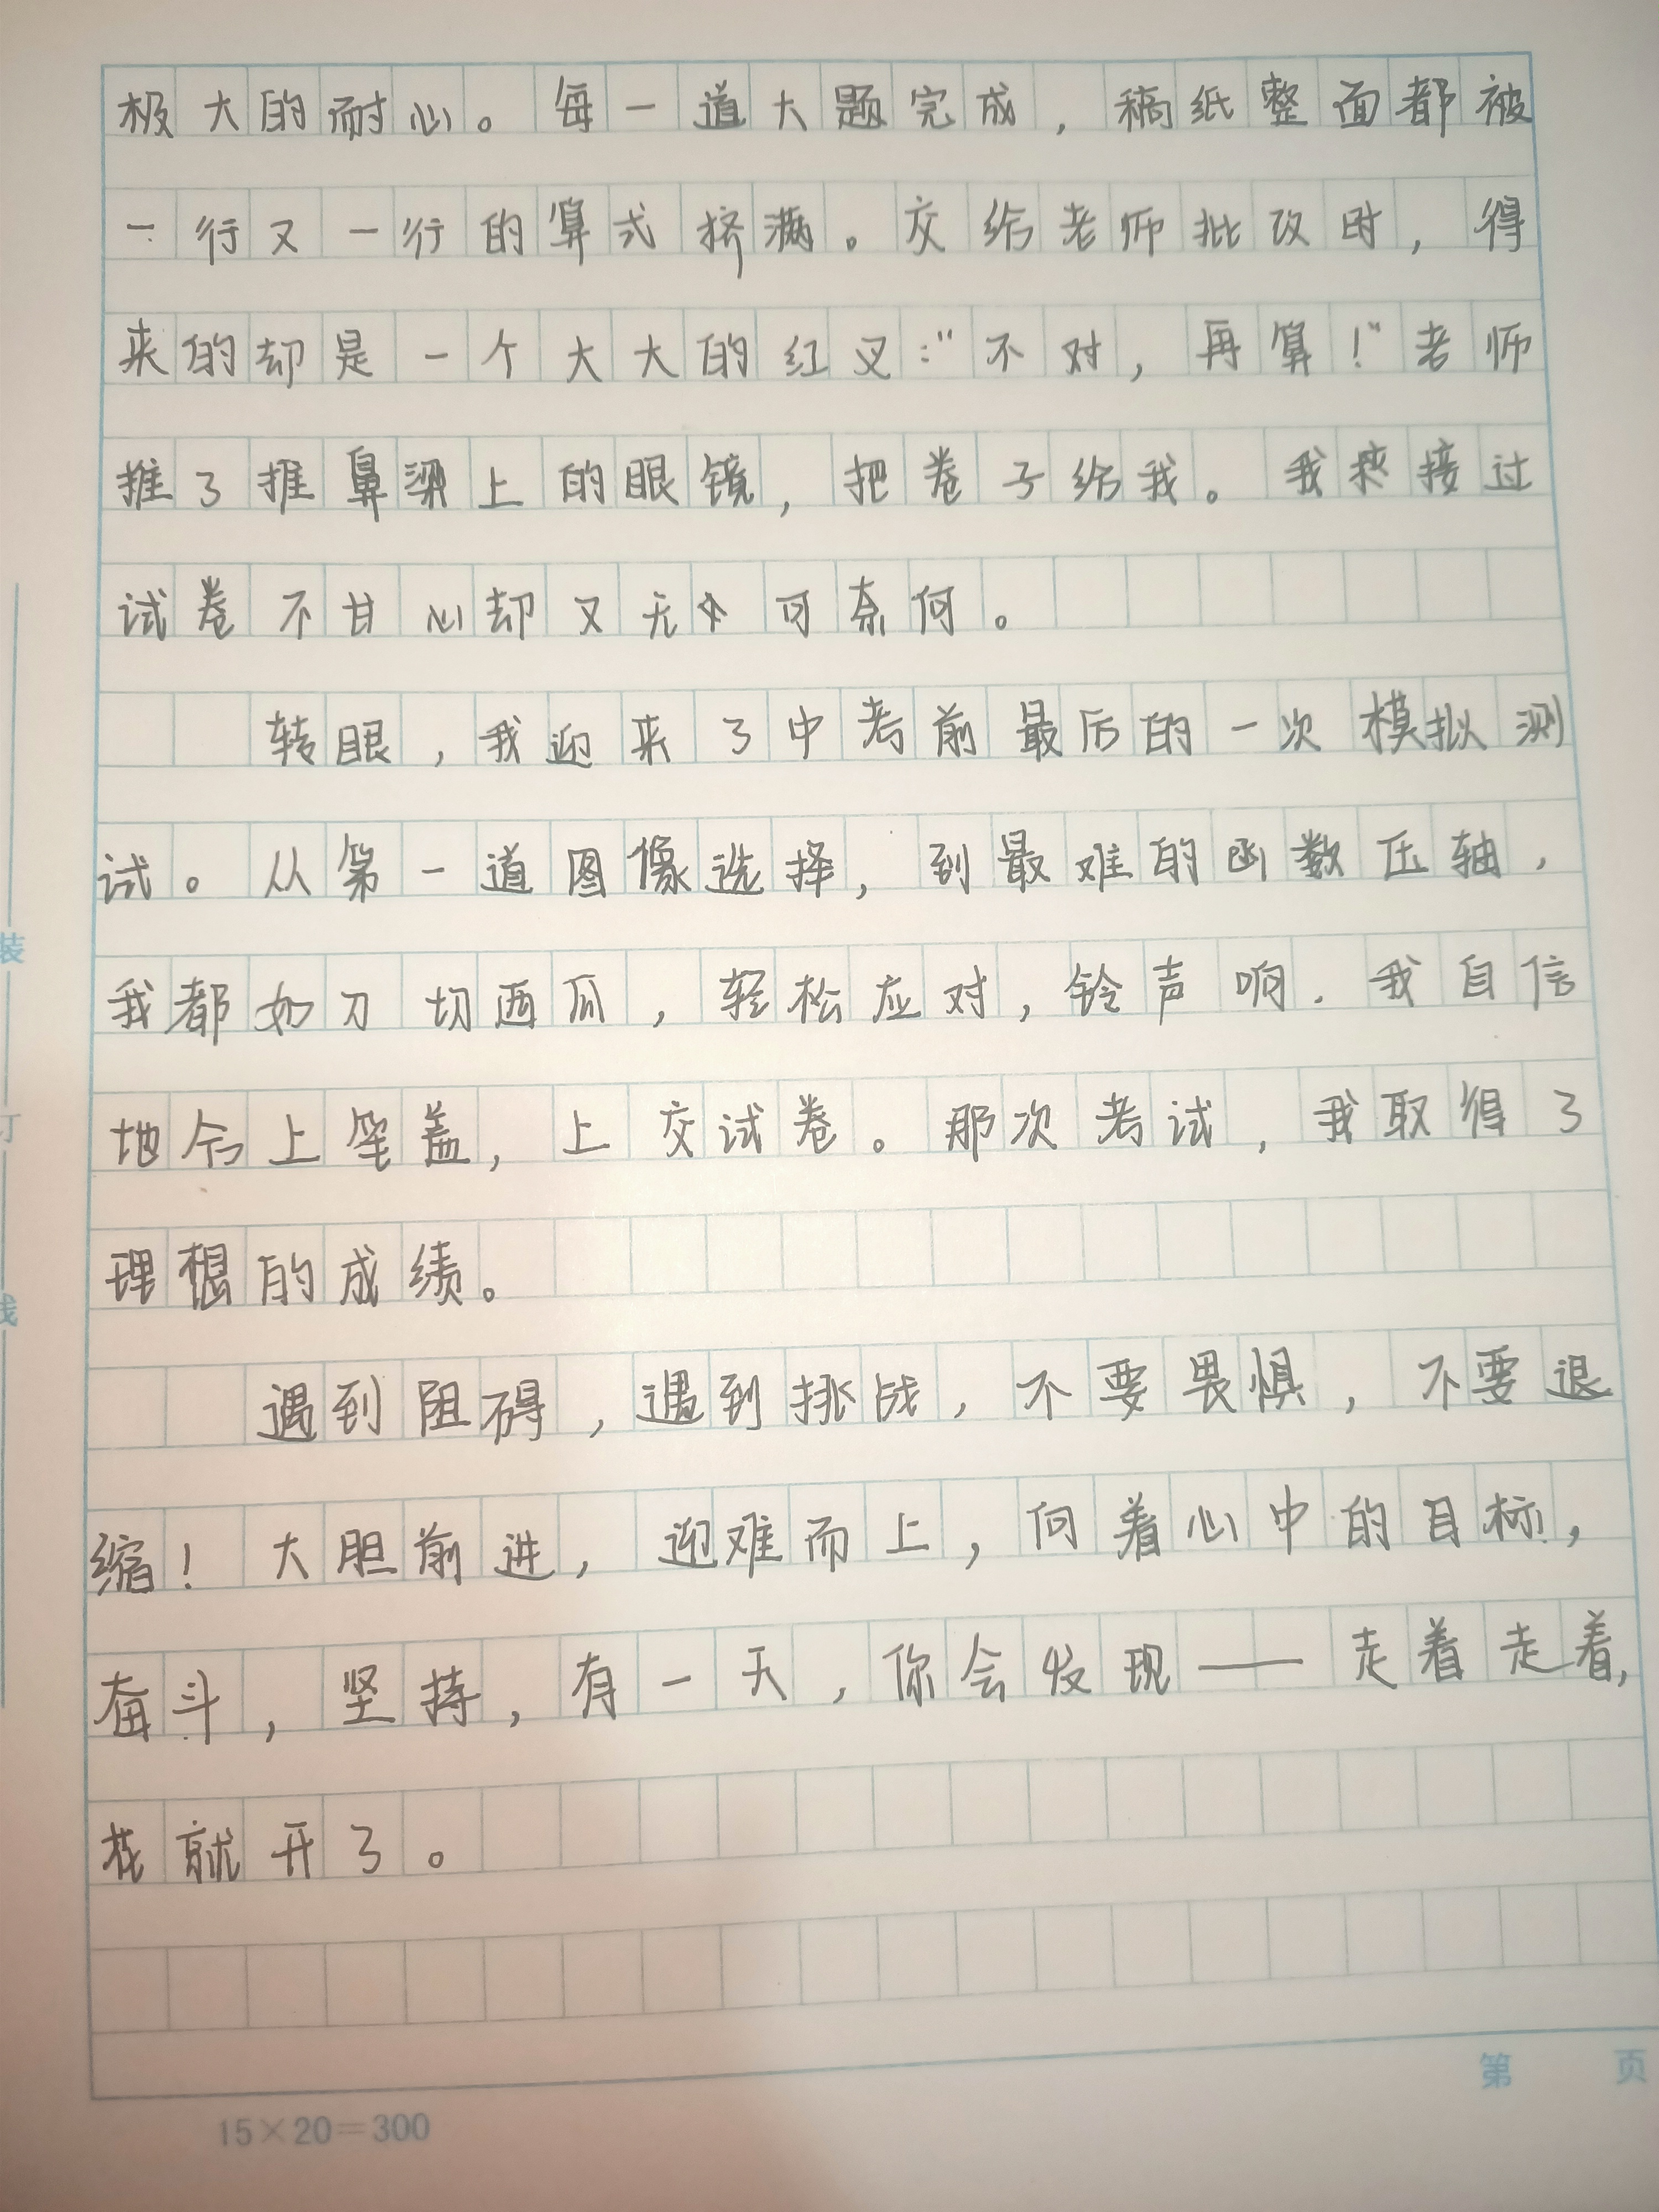 极大的耐心。每一道大题完成，稿纸整面都被
一行又一行的算式挤满。交给老师批改时，得
来的却是一个大大的红叉："不对，再算！"老师
推了推鼻梁上的眼镜，把卷子给我。我接过
试卷不甘心却又无可奈何。
转眼，我迎来了中考前最后的一次模拟测
试。从第一道图像选择，到最难的函数压轴，
我都如刀切西瓜，轻松应对，铃声响，我自信
地合上笔盖，上交试卷。那次考试，我取得了
理想的成绩。
遇到阻碍，遇到挑战，不要畏惧，不要退
缩！大胆前进，迎难而上，向着心中的目标，
奋斗，坚持，有一天，你会发现——走着走着，
花就开了。
装
订
线
第 页
15×20=300